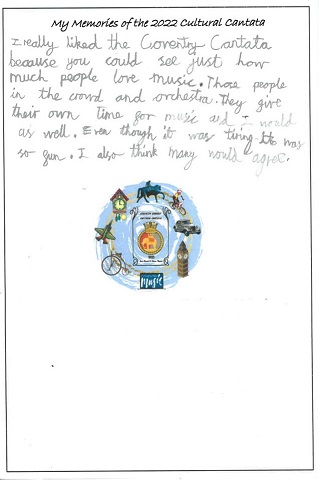 My Memories of the 2022 Cultural Cantata
I really liked the Coventry Cantata
because you could see just how
much people love music. Those people
in the crowd and orchestra. They give
their own time for music and I would
as well. Even though it was tiring It was
so fun. I also think many would agree.
Music